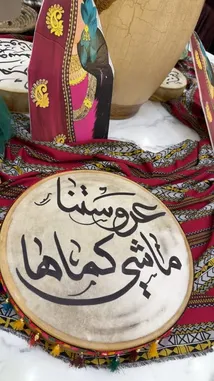 عروستنا
ماشي كماها